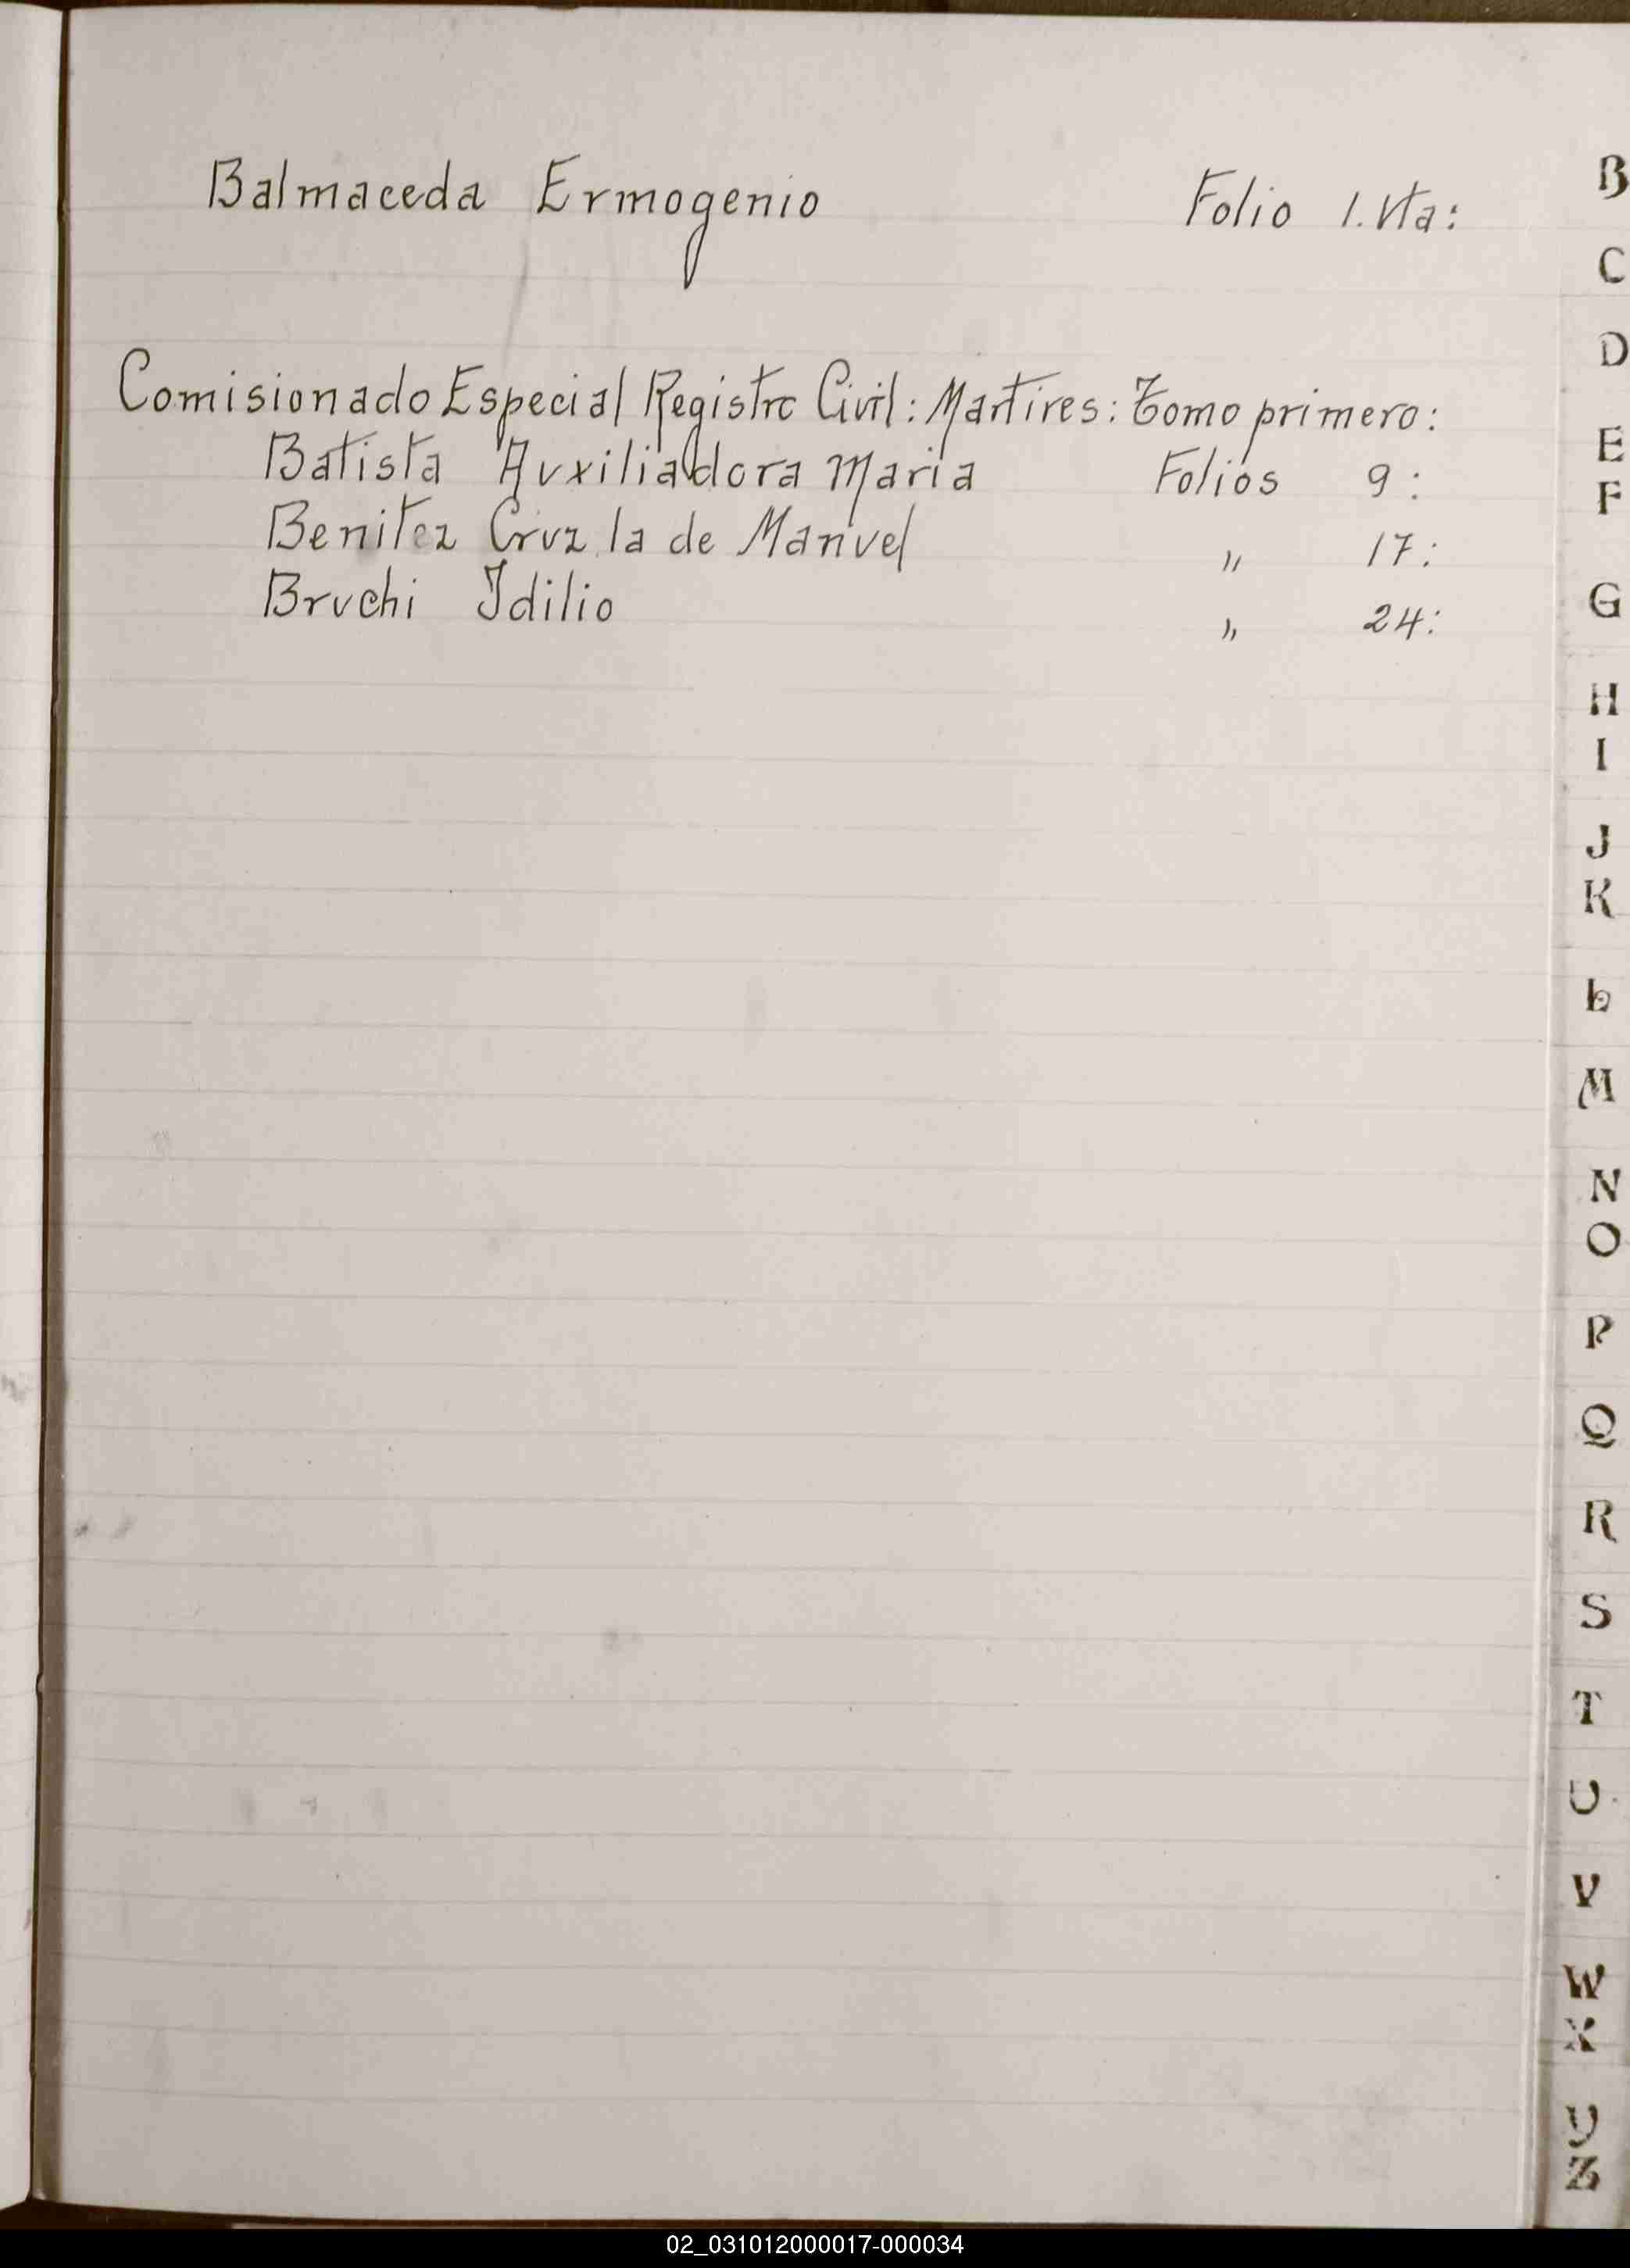 Balmaceda Ermogenio Folio 1. Vta:
Comisionado Especial Registro Civil: Martires: Tomo primero:
Batista Auxiliadora Maria Folios 9:
Benitez Cruz la de Manuel " 17:
Bruchi Idilio " 24:
B
C
D
E
F
G
H
I
J
K
L
M
N
O
P
Q
R
S
T
U
V
W
X
Y
Z
02_031012000017-000034